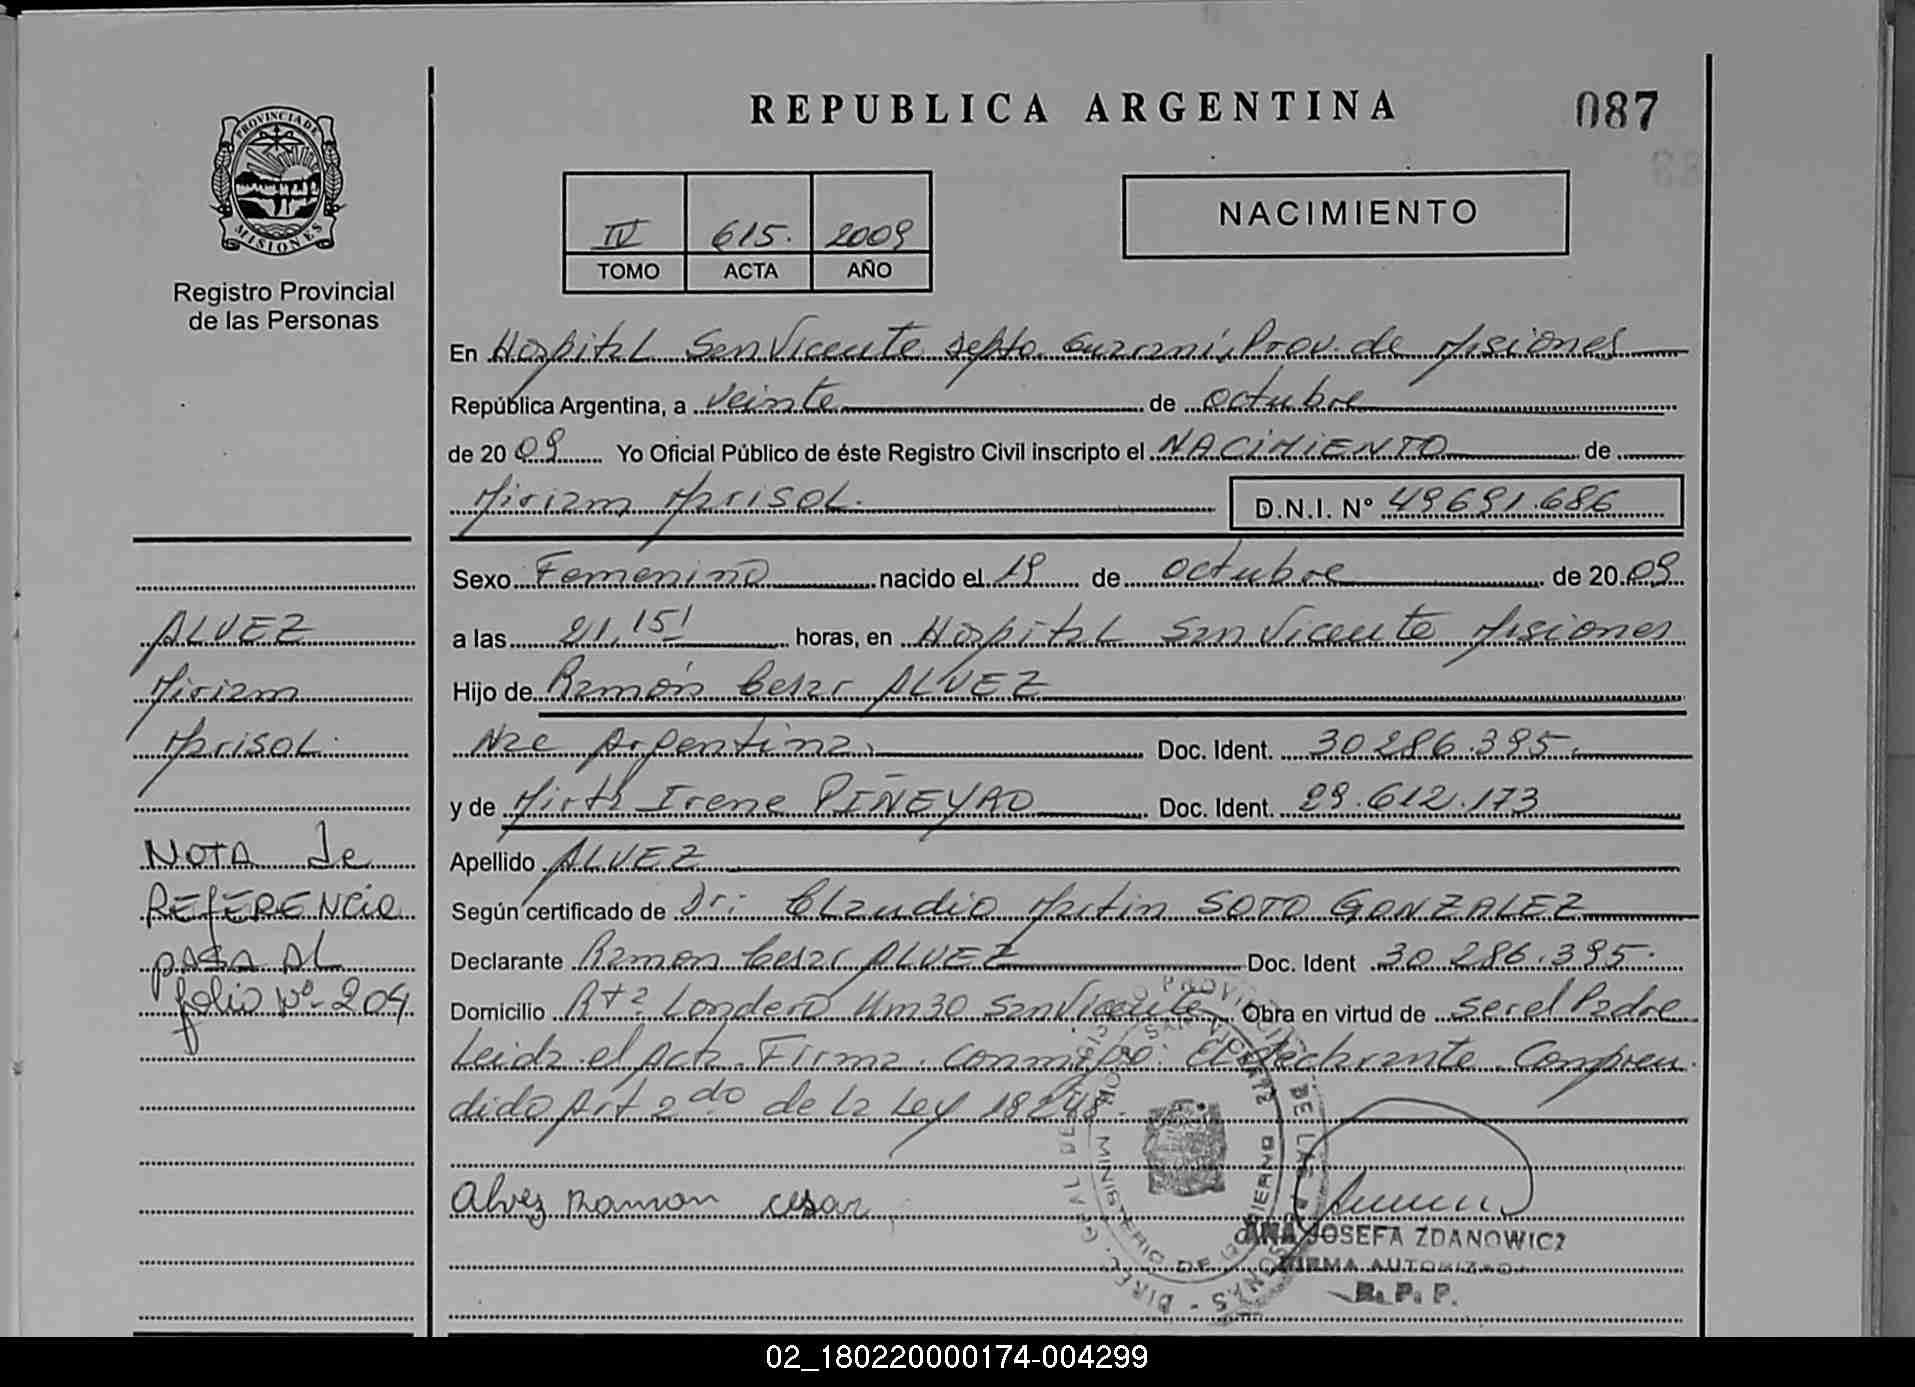 REPUBLICA ARGENTINA
087
PROVINCIA DE
MISIONES
Registro Provincial
de las Personas
IV 615. 2009
TOMO ACTA AÑO
NACIMIENTO
En Hospital San Vicente depto. Guaraní, Prov. de Misiones
República Argentina, a veinte de octubre
de 2009 Yo Oficial Público de éste Registro Civil inscripto el NACIMIENTO de
Miriam Marisol. D.N.I. Nº 49691.686
Sexo Femenino nacido el 19 de octubre de 2009
a las 21,15' horas, en Hospital San Vicente Misiones
Hijo de Ramón Cesar ALVEZ
Nac Argentina. Doc. Ident. 30286.395.
y de Mirta Irene PIÑEYRO Doc. Ident. 29.612.173
Apellido ALVEZ
Según certificado de Dr: Claudio Martin SOTO GONZALEZ
Declarante Ramon Cesar ALVEZ Doc. Ident 30.286.395.
Domicilio Rta Londero Km30 San Vicente Obra en virtud de ser el Padre
Leida el Acta. Firma. conmigo: El declarante Compren
dido Art 2do de la Ley 18248.
Alvez Ramon cesar
ANA JOSEFA ZDANOWICZ
FIRMA AUTORIZADA
R. P. P.
ALVEZ
Miriam
Marisol.
NOTA de
REFERENCIA
PASA AL
folio Nº 204
02_180220000174-004299